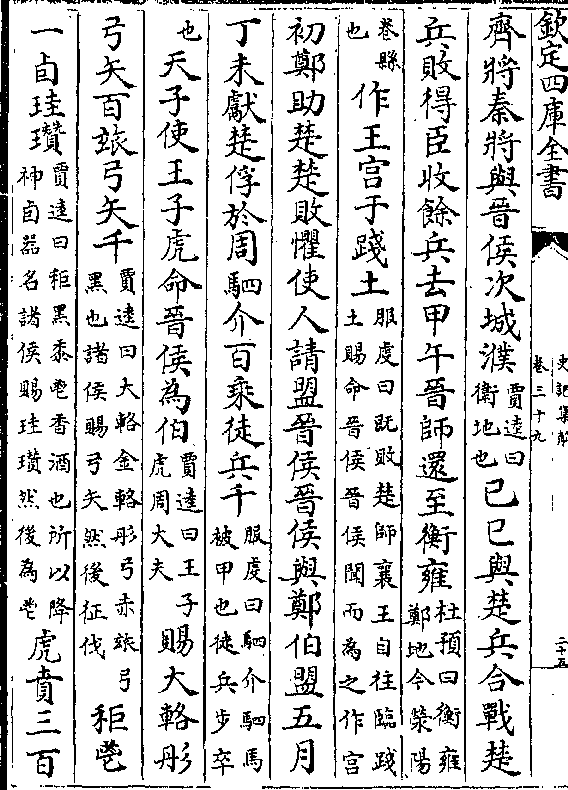 欽定四庫全書
史記集解
卷三十九
二十五
齊將秦將與晉侯次城濮賈逵曰衛地也己巳與楚兵合戰楚
兵敗得臣收餘兵去甲午晉師還至衡雍杜預曰衡雍鄭地今滎陽
卷縣也作王宮于踐土服虔曰既敗楚師襄王自往臨踐土賜命晉侯晉侯聞而為之作宮
初鄭助楚楚敗懼使人請盟晉侯晉侯與鄭伯盟五月
丁未獻楚俘於周駟介百乘徒兵千服虔曰駟介駟馬被甲也徒兵步卒
也天子使王子虎命晉侯為伯賈逵曰王子虎周大夫賜大輅彤
弓矢百玈弓矢千賈逵曰大輅金輅彤弓赤玈弓黑也諸侯賜弓矢然後征伐秬鬯
一卣珪瓚賈逵曰秬黑黍鬯香酒也所以降神卣器名諸侯賜珪瓚然後為鬯虎賁三百